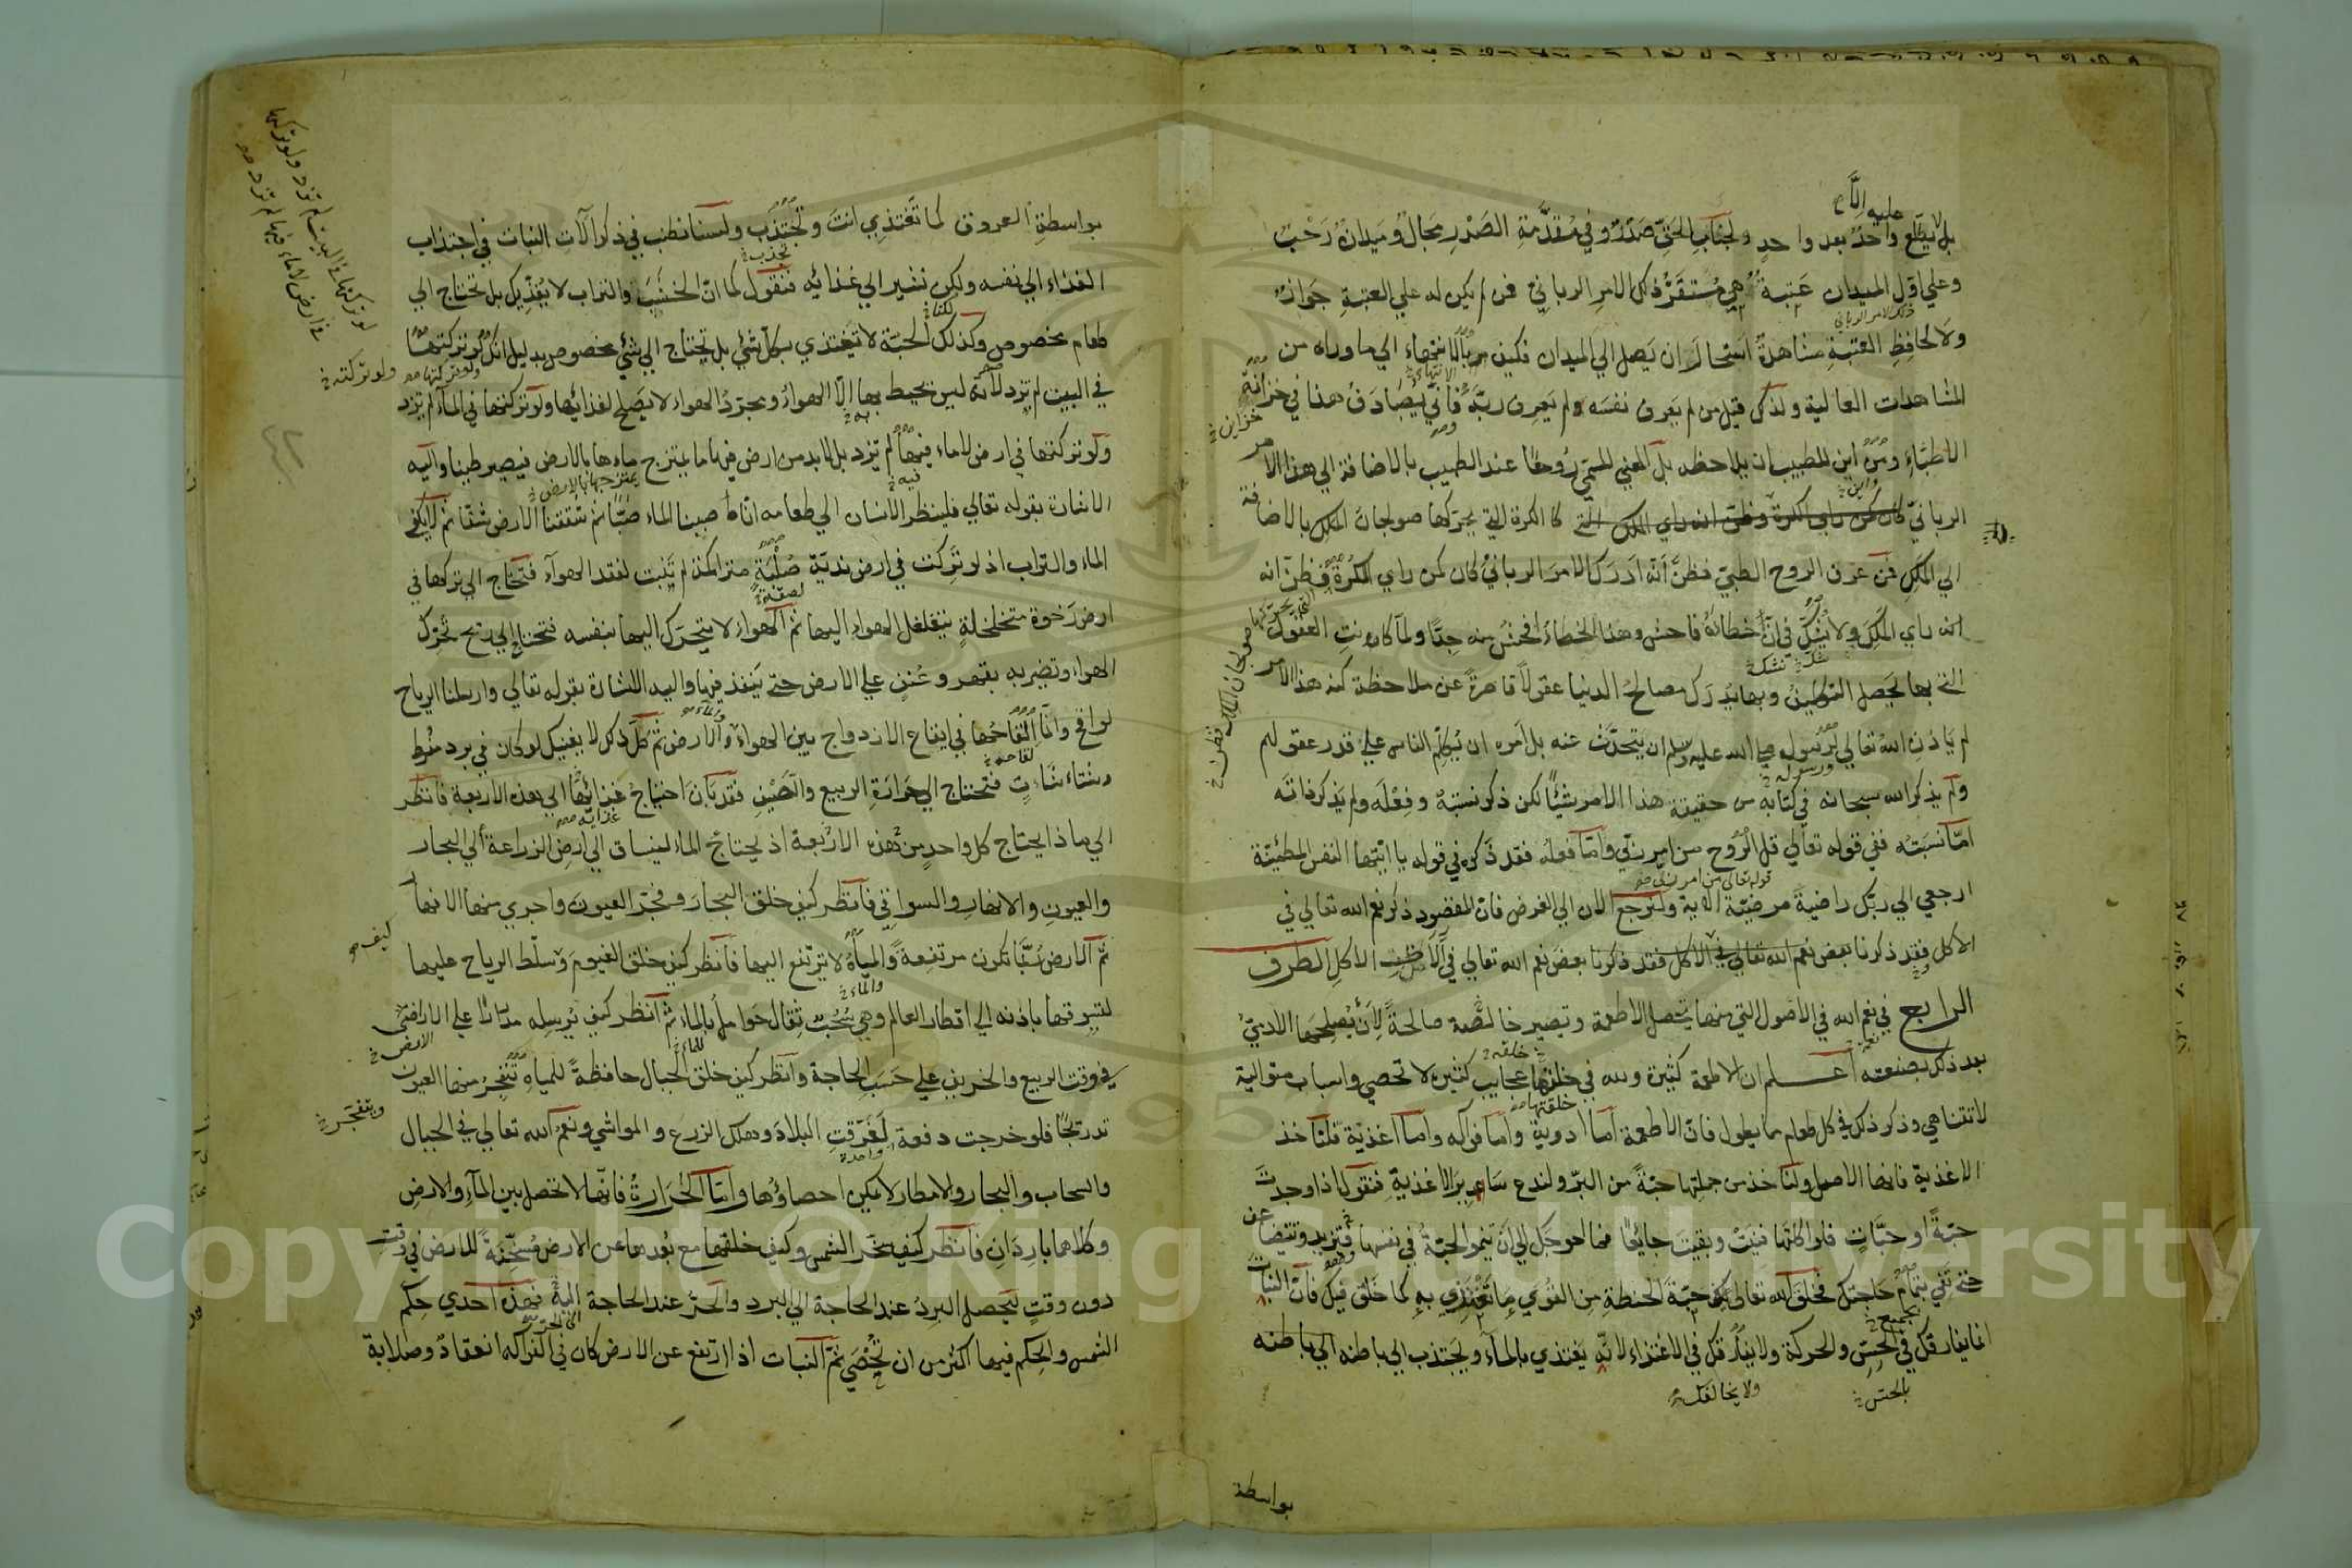 عليه الا
بل لا يطلع واحد بعد واحد ولجناب الحق صدر وفي مقدمة الصدر مجال وميدان رحب
وعلي اول الميدان عتبة هي مستقر ذلك الامر الرباني فمن لم يكن له علي العتبة جواز
ذلك الامر الرباني
ولا لحافظ العتبة مشاهدة استحال ان يصل الي الميدان فكيف بالانتهاء الي ما وراه من
الانتهاء
المشاهدات العالية ولذلك قيل من لم يعرف نفسه ولم يعرف ربه فأني يصادف هذا في خزانة
خزاين
الاطباء ومن اين للطبيب ان يلاحظه بل المعني المسمي روحا عند الطبيب بالاضافة الي هذا الامر
واين
الرباني كان كمن راي الكرة وظن انه راي الملك التي كالكرة التي يحركها صولجان الملك بالاضافة
الي الملك فمن عرف الروح الطبي فظن انه ادرك الامر الرباني كان كمن راي الكرة فظن انه
التي يحركها صولجان الملك فظن
انه راي الملك ولا يشك في ان خطائه فاحش وهذا الخطاء افحش منه جدا ولما كانت العقول
شك نشك
التي بها يحصل التكليف وبها يدرك مصالح الدنيا عقولا قاصرة عن ملاحظة كنه هذا الامر
لم ياذن الله تعالي لرسوله صلي الله عليه وسلم ان يتحدث عنه بل امره ان يكلم الناس علي قدر عقولهم
ورسوله
ولم يذكر الله سبحانه في كتابه من حقيقة هذا الامر شيئا لكن ذكر نسبته وفعله ولم يذكر ذاته
اما نسبته ففي قوله تعالي قل الروح من امر ربي واما فعله فقد ذكر في قوله يا ايتها النفس المطمئنة
قوله تعالي من امر ربي
ارجعي الي ربك راضية مرضية الاية ولنرجع الان الي الغرض فان المقصود ذكر نعم الله تعالي في
الاكل فقد ذكرنا بعض نعم الله تعالي في الاكل فقد ذكرنا بعض نعم الله تعالي في الات الاكل الطرف
الرابع في نعم الله في الاصول التي منها يحصل الاطعمة وتصير خالصة صالحة لان يصلحها الادمي
بعد ذلك بصنعته اعلم ان الاطعمة كثيرة ولله في خلقها عجايب كثيرة لا تحصي واسباب متوالية
خلقه
خلقتها
لا تتناهي وذكر ذلك في كل طعام مما يطول فان الاطعمة اما ادوية واما فواكه واما اغذية فلناخذ
الاغذية فانها الاصل ولناخذ من جملتها حبة من البر ولندع ساير الاغذية فنقول اذا وجدت
حبة او حبات فلو اكلتها فنيت وبقيت جائعا فما احوجك الي ان تنمو الحبة في نفسها فتزيد وتتضاعف
حتي تفي بتمام حاجتك فخلق الله تعالي في حبة الحنطة من القوي ما تغتذي به كما خلق فيك فان النبات
بجميع
انما يفارقك في الحس والحركة ولا يفارقك في الاغتذاء لانه يغتذي بالماء ويجتذب الي باطنه الي باطنه
بالحس
ولا يخالفك
بواسطة
بواسطة العروق كما تغتذي انت وتجتذب ولسنا نطنب في ذكر الات النبات في اجتذاب
تجذب
الغذاء الي نفسه ولكن نشير الي غذائه فنقول كما ان الخشب والتراب لا يغذيك بل تحتاج الي
طعام مخصوص وكذلك الحبة لا تغتذي بكل شئ بل تحتاج الي شئ مخصوص بدليل انك لو تركتها
ولو تركتها ولو تركته
في البيت لم تزد لانه ليس يحيط بها الا الهواء ومجرد الهواء لا يصلح لغذائها ولو تركتها في الماء لم تزد
ولو تركتها في ارض لا ماء فيها لم تزد بل لا بد من ارض فيها ما يمتزج ماءها بالارض فيصير طينا واليه
فيه
يمتزج بها بالارض
الاشارة بقوله تعالي فلينظر الانسان الي طعامه انا صببنا الماء صبا ثم شققنا الارض شقا ثم لا يكفي
الماء والتراب اذ لو تركت في ارض ندية صلبة متراكمة لم تنبت لفقد الهواء فتحتاج الي تركها في
ارض رخوة متخلخلة يتغلغل الهواء اليها ثم الهواء لا يتحرك اليها بنفسه فتحتاج الي ريح تحرك
الهواء وتضربه بقهر وعنف علي الارض حتي ينفذ فيها واليه الاشارة بقوله تعالي وارسلنا الرياح
لواقح وانما القاحها في ايقاع الازدواج بين الهواء والارض ثم كل ذلك لا يغنيك لو كان في برد مفرط
والماء
وشتاء شات فتحتاج الي حرارة الربيع والصيف فقد بان احتياج غذائها الي هذه الاربعة فانظر
غذايه
الي ما ذا يحتاج كل واحد من هذه الاربعة اذ يحتاج الماء لينساق الي ارض الزراعة الي البحار
والعيون والانهار والسواقي فانظر كيف خلق البحار وفجر العيون واجري منها الانهار
كيف
ثم الارض ربما تكون مرتفعة والمياه لا ترتفع اليها فانظر كيف خلق الغيوم وسلط الرياح عليها
والماء
لتسوقها باذنه الي اقطار العالم وهي سحب ثقال حوامل بالماء ثم انظر كيف يرسله مدرارا علي الاراضي
الارض
في وقت الربيع والخريف علي حسب الحاجة وانظر كيف خلق الجبال حافظة للمياه تتفجر منها العيون
للماء
وتتفجر
تدريجا فلو خرجت دفعة لغرقت البلاد وهلك الزرع والمواشي ونعم الله تعالي في الجبال
واحدة
والسحاب والبحار والامطار لا يمكن احصاؤها واما الحرارة فانها لا تحصل بين الماء والارض
وكلاهما باردان فانظر كيف سخر الشمس وكيف خلقها مع بعدها عن الارض مسخنة للارض في وقت
دون وقت ليحصل البرد عند الحاجة الي البرد والحر عند الحاجة اليه فهذه احدي حكم
الي الحر
الشمس والحكم فيها اكثر من ان تحصي ثم النبات اذا ارتفع عن الارض كان في الفواكه انعقاد وصلابة
Copyright © King Saud University
1957